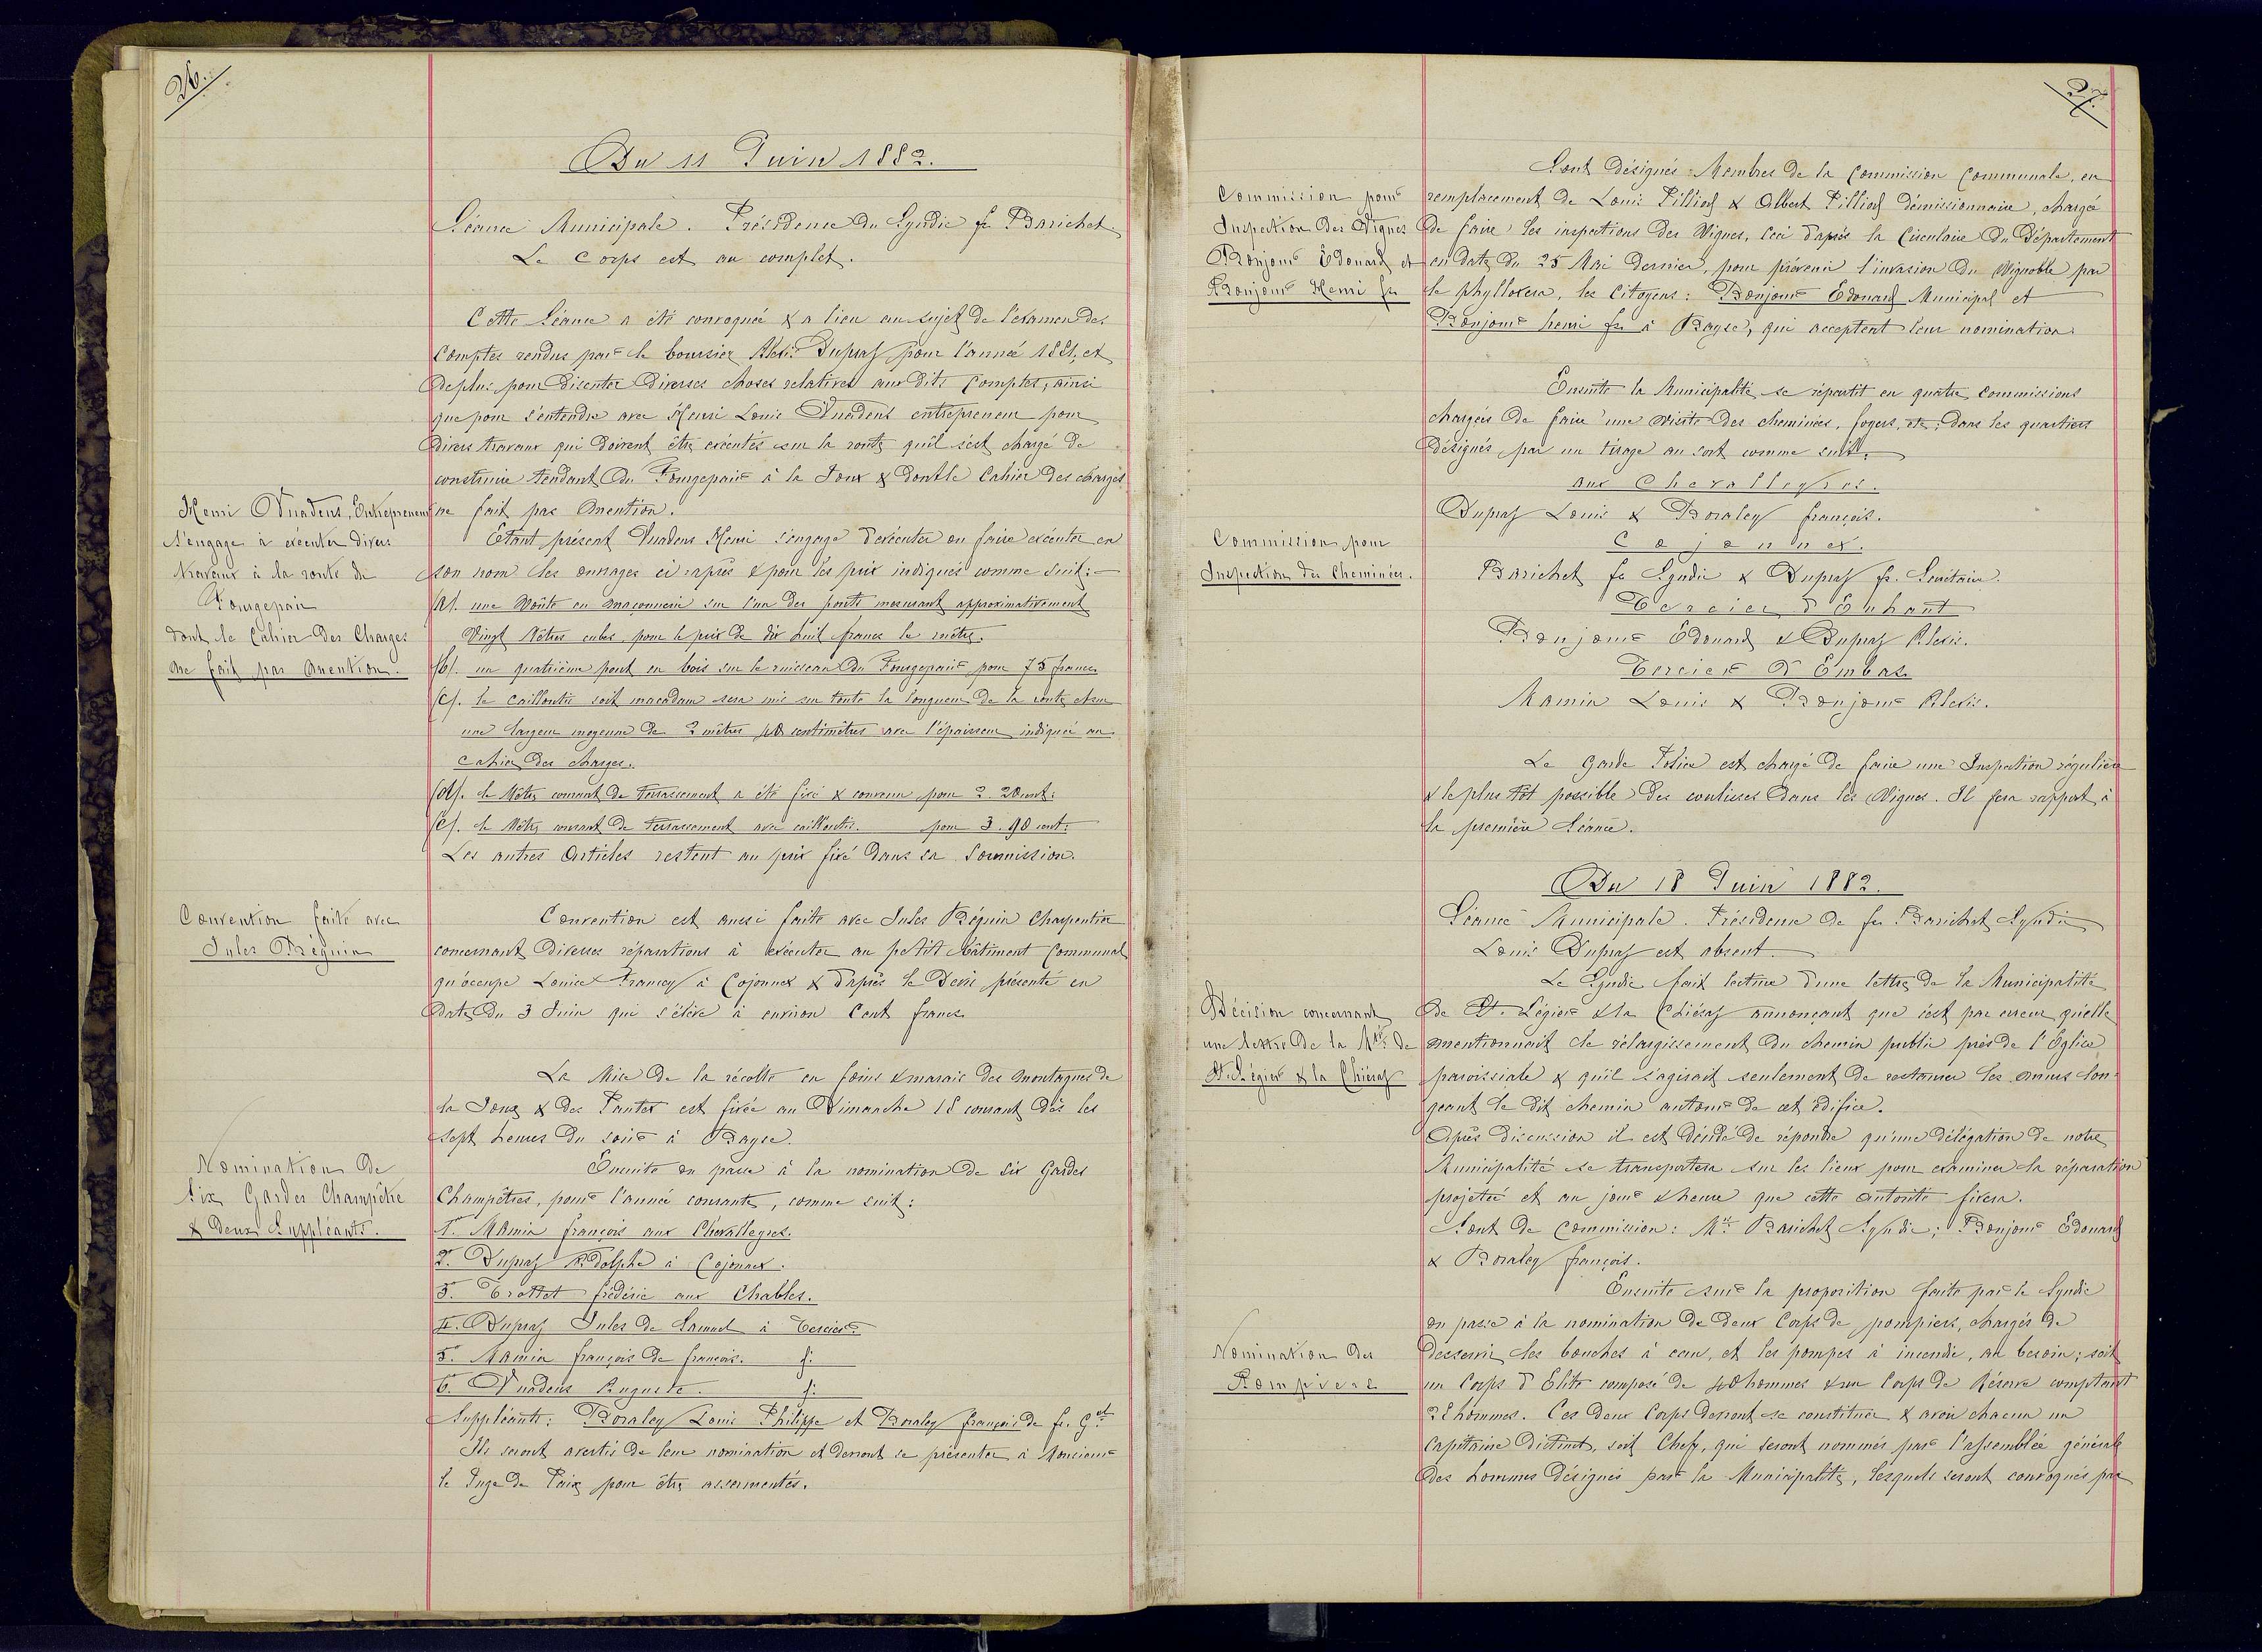 26.
Du 11 Juin 1882.
Séance Municipale. Présidence du Syndic fs Barichet.
Le Corps est au complet.
Cette Séance a été convoquée & a lieu au sujet de l'examen des
Comptes rendus par le boursier Alexis Dupraz pour l'année 1881, et
de plus pour discuter diverses choses relatives aux dits Comptes, ainsi
que pour s'entendre avec Henri Louis Vuadens entrepreneur pour
divers travaux qui doivent être exécutés sur la route qu'il s'est chargé de
construire tendant du Fourgepain à la Joux & dont le Cahier des charges
ne fait pas mention.
Henri Vuadens, Entrepreneur
s'engage à exécuter divers
travaux à la route du
Fourgepain
dont le Cahier des Charges
ne fait pas mention.
Etant présent Vuadens Henri s'engage d'exécuter ou faire exécuter en
son nom les ouvrages ci-après & pour les prix indiqués comme suit:
(a). une Voûte en maçonnerie sur l'un des ponts mesurant approximativement
Vingt Mètres cubes, pour le prix de dix huit francs le mètre.
(b). un quatrième pont en bois sur le ruisseau du Fourgepain pour 75 francs
(c). le Cailloutis soit macadam sera mis sur toute la longueur de la route et sur
une largeur moyenne de 2 mètres 40 centimètres avec l'épaisseur indiquée au
Cahier des charges.
(d). le Mètre courant de Terrassement a été fixé & convenu pour 2.20 cent:
(e). le Mètre courant de Terrassement avec cailloutis. pour 3.90 cent:
Les autres Articles restent au prix fixé dans sa Soumission.
Convention faite avec
Jules Béguin
Convention est aussi faite avec Jules Béguin Charpentier
concernant diverses réparations à exécuter au petit bâtiment Communal
qu'occupe Louise Francey à Cojonnex & d'après le Devis présenté en
date du 3 Juin qui s'élève à environ Cent francs.
La Mise de la récolte en foins & marais des montagnes de
la Joux & des Pautex est fixée au Dimanche 18 courant dès les
sept heures du soir à Bayse.
Nomination de
Six Gardes Champêtre
& Deux Suppléants.
Ensuite on passe à la nomination de six Gardes
Champêtres, pour l'année courante, comme suit:
1. Mamin françois aux Chevalleyres.
2. Dupraz Adolphe à Cojonnex.
3. Trottet frédéric aux Chables.
4. Dupraz Jules de Samuel à Tercier.
5. Mamin françois de françois. f:
6. Vuadens Auguste. f:
Suppléants: Boraley Louis Philippe et Boraley françois de fs. Gel
Ils seront avertis de leur nomination et devront se présenter à Monsieur
le Juge de Paix pour être assermentés.
27.
Commission pour
Inspection des Vignes
Bonjour Edouard et
Bonjour Henri fs
Sont désignés Membres de la Commission Communale, en
remplacement de Louis Pilliod & Albert Pilliod démissionnaire, chargé
de faire les inspections des Vignes, Ceci d'après la Circulaire du Département
en date du 25 Mai dernier, pour prévenir l'invasion du Vignoble par
le phylloxera, les Citoyens: Bonjour Edouard Municipal et
Bonjour henri fs à Bayse, qui acceptent leur nomination.
Ensuite la Municipalité se répartit en quatre commissions
chargées de faire une visite des cheminées, foyers, etc; dans les quartiers
désignés par un tirage au sort comme suit.
Commission pour
Inspection des Cheminées.
aux Chevalleyres.
Dupraz Louis & Boraley françois.
Cojonnex.
Barichet fs Syndic & Dupraz fs. Secrétaire.
Tercier d'Enhaut
Bonjour Edouard & Dupraz Alexis.
Tercier d'Embas.
Mamin Louis & Bonjour Alexis.
Le Garde Police est chargé de faire une Inspection régulière
& le plus tôt possible des coulisses dans les Vignes. Il fera rapport à
la première Séance.
Du 18 Juin 1882.
Séance Municipale. Présidence de fs Barichet Syndic
Louis Dupraz est absent.
Décision concernant
une lettre de la Mté de
St. Légier & la Chiésaz
Le Syndic fait lecture d'une lettre de la Municipalité
de St. Légier & la Chiésaz annonçant que c'est par erreur qu'elle
mentionnait le rélargissement du chemin public près de l'Eglise
paroissiale & qu'il s'agirait seulement de restaurer les murs lon-
geant le dit chemin autour de cet édifice.
Après discussion il est décidé de répondre qu'une délégation de notre
Municipalité se transportera sur les lieux pour examiner la réparation
projetée et au jour & heure que cette autorité fixera.
Sont de Commission: Mrs Barichet Syndic; Bonjour Edouard
& Boraley françois.
Nomination des
Pompiers
Ensuite sur la proposition faite par le Syndic
on passe à la nomination de deux Corps de pompiers, chargés de
desservir les bouches à eau, et les pompes à incendie, au besoin; soit
un Corps d'Elite composé de 40 hommes & un Corps de Réserve comptant
28 hommes. Ces deux Corps devront se constituer & avoir chacun un
Capitaine distinct, soit Chef, qui seront nommés par l'assemblée générale
des hommes désignés par la Municipalité, lesquels seront convoqués par